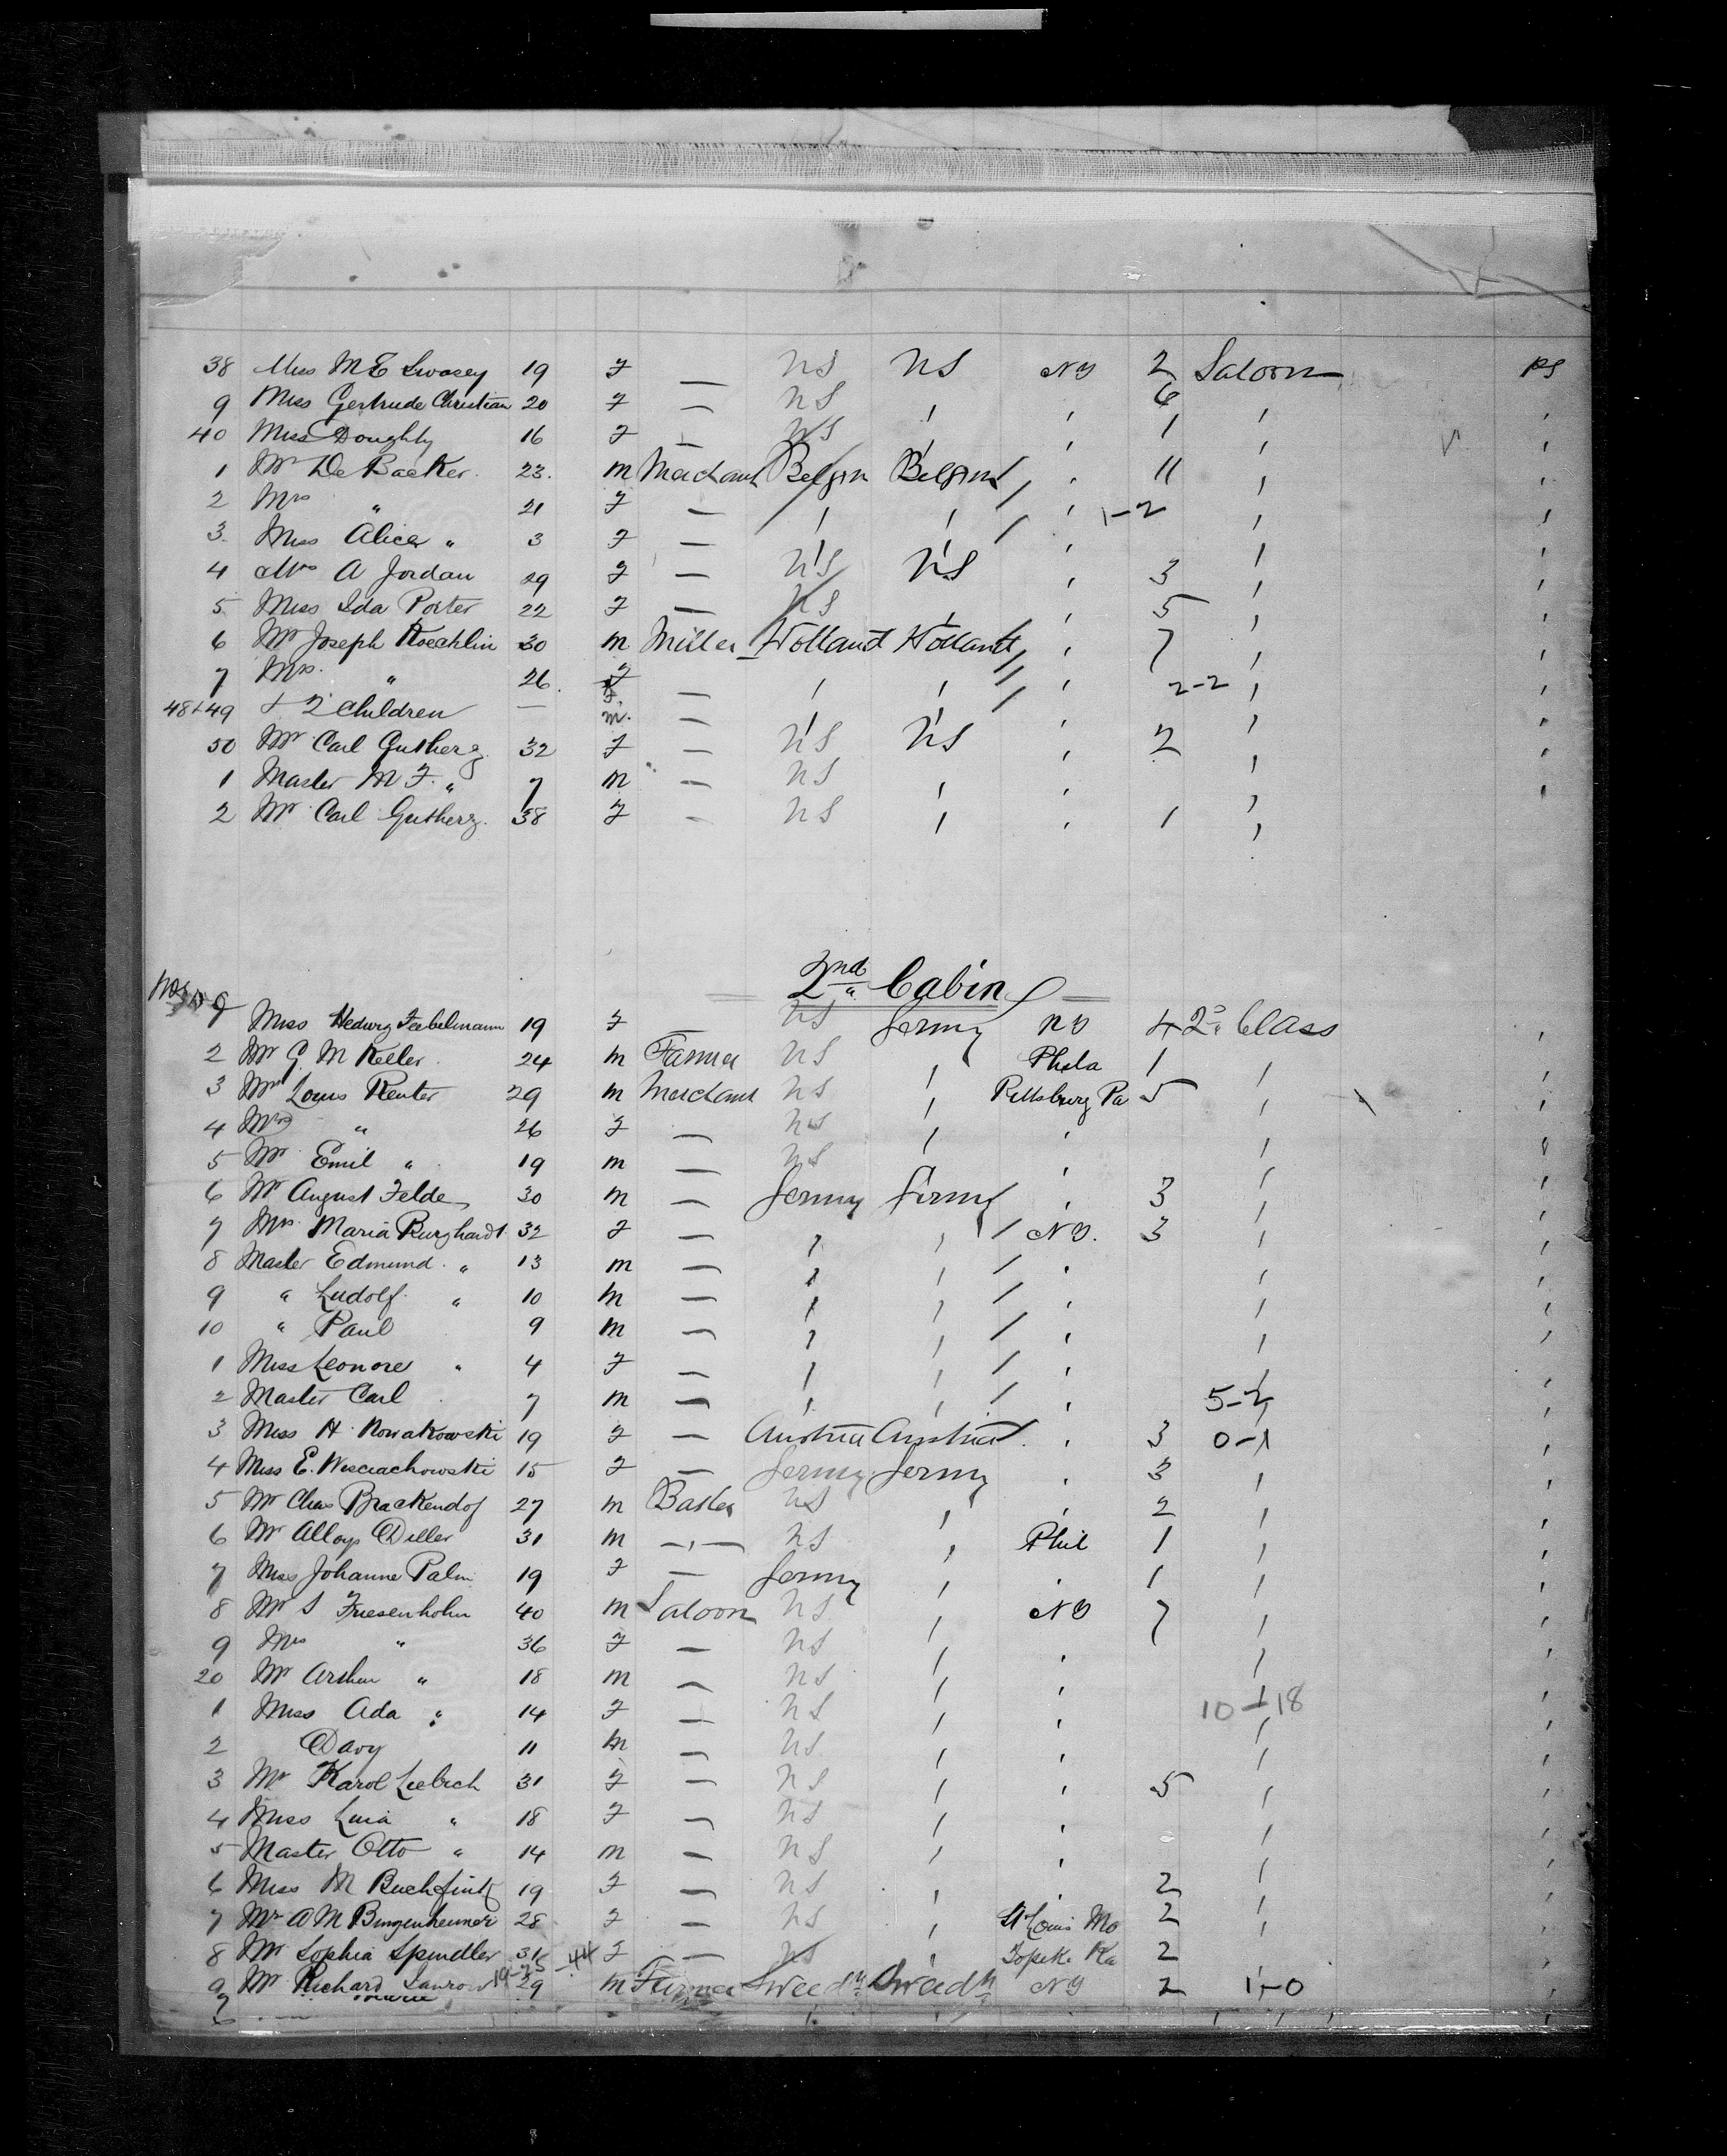 38 Miss M E Swasey 19 F — US US NY 2 Saloon PS
9 Miss Gertrude Christian 20 F — US " " 6 "
40 Miss Doughty 16 F — US " " 1 "
1 Mr De Backer 23 M Merchant Belgm Belgm " 11 "
2 Mrs " 21 F — " " " 1-2 "
3 Miss Alice " 3 F — " " " "
4 Mrs A Jordan 29 F — US US " 3 "
5 Miss Ida Porter 22 F — US " " 5 "
6 Mr Joseph Koechlin 30 M Miller Holland Holland " 7 "
7 Mrs " 26 F — " " " 2-2 "
48+49 + 2 Children — F. M. — " " " "
50 Mr Carl Gutherz 32 F — US US " 2 "
1 Master M F. " 7 M — US " " "
2 Mr Carl Gutherz 38 F - US " " 1 "
2nd Cabin
1 Miss Hedwig Feebelmann 19 F — US Germy NY 4 2d Class
2 Mr G. M Keeler 24 M Farmer US " Phila 1 "
3 Mr Louis Reuter 29 M Merchant US " Pittsburg Pa 5 "
4 Mrs " 26 F — US " " "
5 Mr Emil " 19 M — US " " "
6 Mr August Felde 30 M — Germy Germy " 3 "
7 Mrs Maria Burghardt 32 F — " " NY. 3 "
8 Master Edmund " 13 M — " " " "
9 " Ludolf " 10 M — " " " "
10 " Paul 9 M — " " " "
1 Miss Leonore " 4 F — " " " "
2 Master Carl 7 M — " " " 5-2
3 Miss H. Nowakowski 19 F — Austria Austria " 3 0-1
4 Miss E. Wisciachowski 15 F — Germy Germy " 3 "
5 Mr Chas Brackendof 27 M US " " 2 "
6 Mr Alloys Diller 31 M —"— US " Phil 1 "
7 Miss Johanne Palm 19 F — Germy " " 1 "
8 Mr S Friesenhohn 40 M Saloon US " NY 7 "
9 Mrs " 36 F — US " " "
20 Mr Arthur " 18 M — US " " "
1 Miss Ada " 14 F — US " " 10-18
2 Davy 11 M — US " " "
3 Mr Karol Liebich 31 F — US " " 5 "
4 Miss " 18 F — US " " "
5 Master Otto " 14 M — US " " "
6 Miss M Buchfink 19 F — US " " 2 "
7 Mr A M Bingenheimer 28 F — US " St Louis Mo 2 "
8 Mr Sophia Spindler 31 F — US " Topeka Ka 2
19-25 -44
9 Mr Richard 29 M Farmer Sweedn Sweedn NY 2 1-0